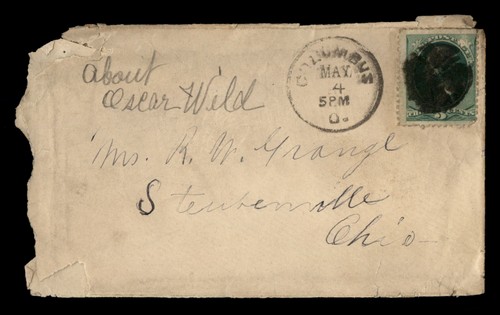 About
Oscar Wild
COLUMBUS
MAY
4
5PM
O.
Mrs. R. W. Grange
Steubenville
Ohio